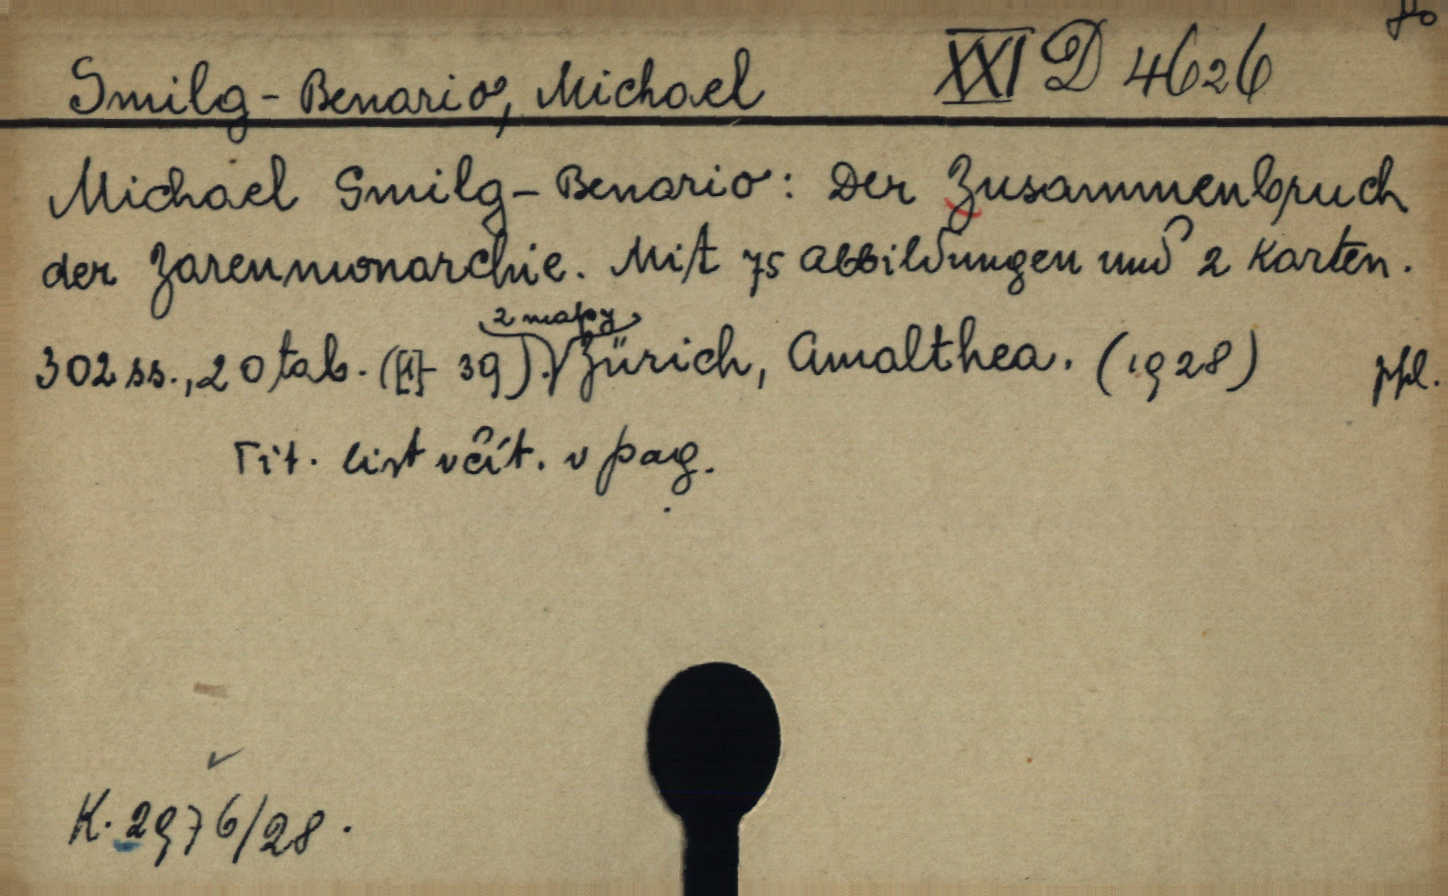 Smilg-Benario, Michael XXI D 4626
Michael Smilg-Benario: Der Zusammenbruch
der Zarenmonarchie. Mit 75 Abbildungen und 2 Karten.
2 mapy
302 ss., 20 tab. ([1]- 39). Zürich, Amalthea. (1928) ppl.
Tit. list včít. v pag.
K. 2976/28.